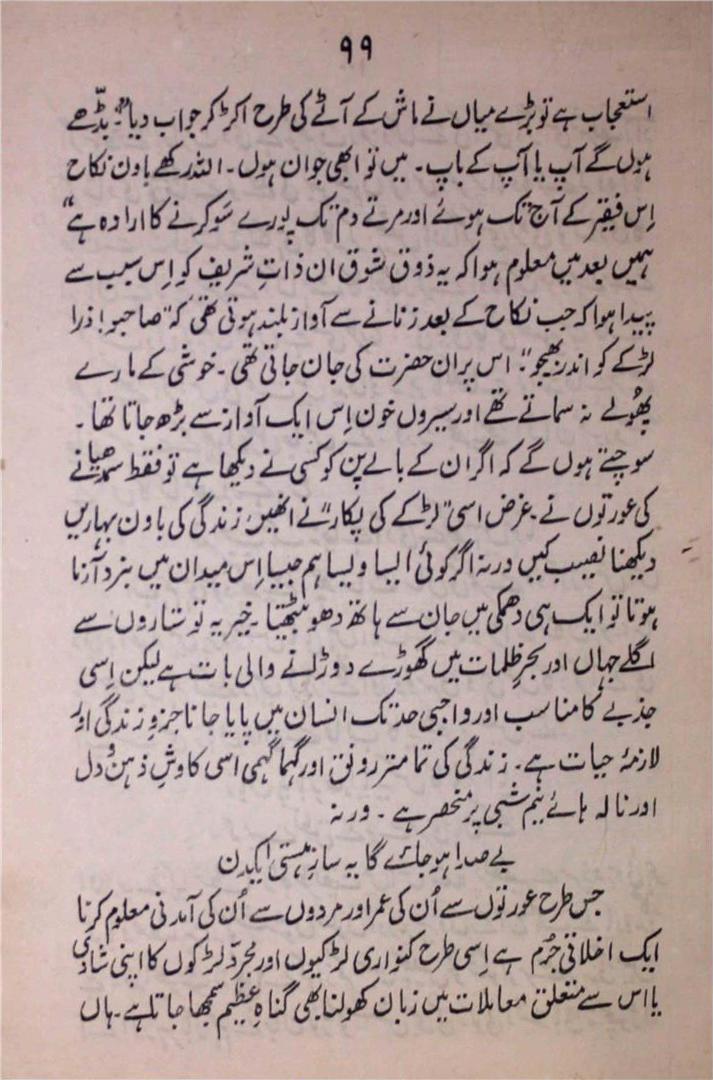 ۹۹
استعجاب ہے تو بڑے میاں نے ماش کے آٹے کی طرح اکڑ کر جواب دیا "بڈّھے
ہوں گے آپ یا آپ کے باپ۔ میں تو ابھی جوان ہوں۔ اللہ رکھے باون نکاح
اِس فیقر کے آج تک ہوئے اور مرتے دم تک پورے سَو کرنے کا ارادہ ہے"
ہمیں بعد میں معلوم ہوا کہ یہ ذوق شوق ان ذاتِ شریف کو اِس سبب سے
پیدا ہوا کہ جب نکاح کے بعد زنانے سے آواز بلند ہوتی تھی کہ "صاحبو! ذرا
لڑکے کو اندر بھیجو"۔ اس پر ان حضرت کی جان جاتی تھی۔ خوشی کے مارے
پھُولے نہ سماتے تھے اور سیروں خون اِس ایک آواز سے بڑھ جاتا تھا۔
سوچتے ہوں گے کہ اگر ان کے بالے پن کو کسی نے دیکھا ہے تو فقط سمدھیانے
کی عورتوں نے۔ غرض اسی "لڑکے کی پکار" نے انھیں زندگی کی باون بہاریں
دیکھنا نصیب کیں ورنہ اگر کوئی ایسا ویسا ہم جیسا اِس میدان میں نبرد آزما
ہوتا تو ایک ہی دھمکی میں جان سے ہاتھ دھو بیٹھتا۔ خیر یہ تو ستاروں سے
اگلے جہاں اور بحرِ ظلمات میں گھوڑے دوڑانے والی بات ہے لیکن اِسی
جذبے کا مناسب اور واجبی حد تک انسان میں پایا جانا جزوِ زندگی اور
لازمۂ حیات ہے۔ زندگی کی تمامتر رونق اور گہما گہمی اسی کاوشِ ذہن و دل
اور نالہ ہائے نیم شبی پر منحصر ہے۔ ورنہ
بے صدا ہو جائے گا یہ سازِ ہستی ایکدن
جس طرح عورتوں سے اُن کی عمر اور مردوں سے اُن کی آمدنی معلوم کرنا
ایک اخلاقی جُرم ہے اِسی طرح کنواری لڑکیوں اور مجرّد لڑکوں کا اپنی شادی
یا اس سے متعلق معاملات میں زبان کھولنا بھی گناہِ عظیم سمجھا جاتا ہے۔ ہاں